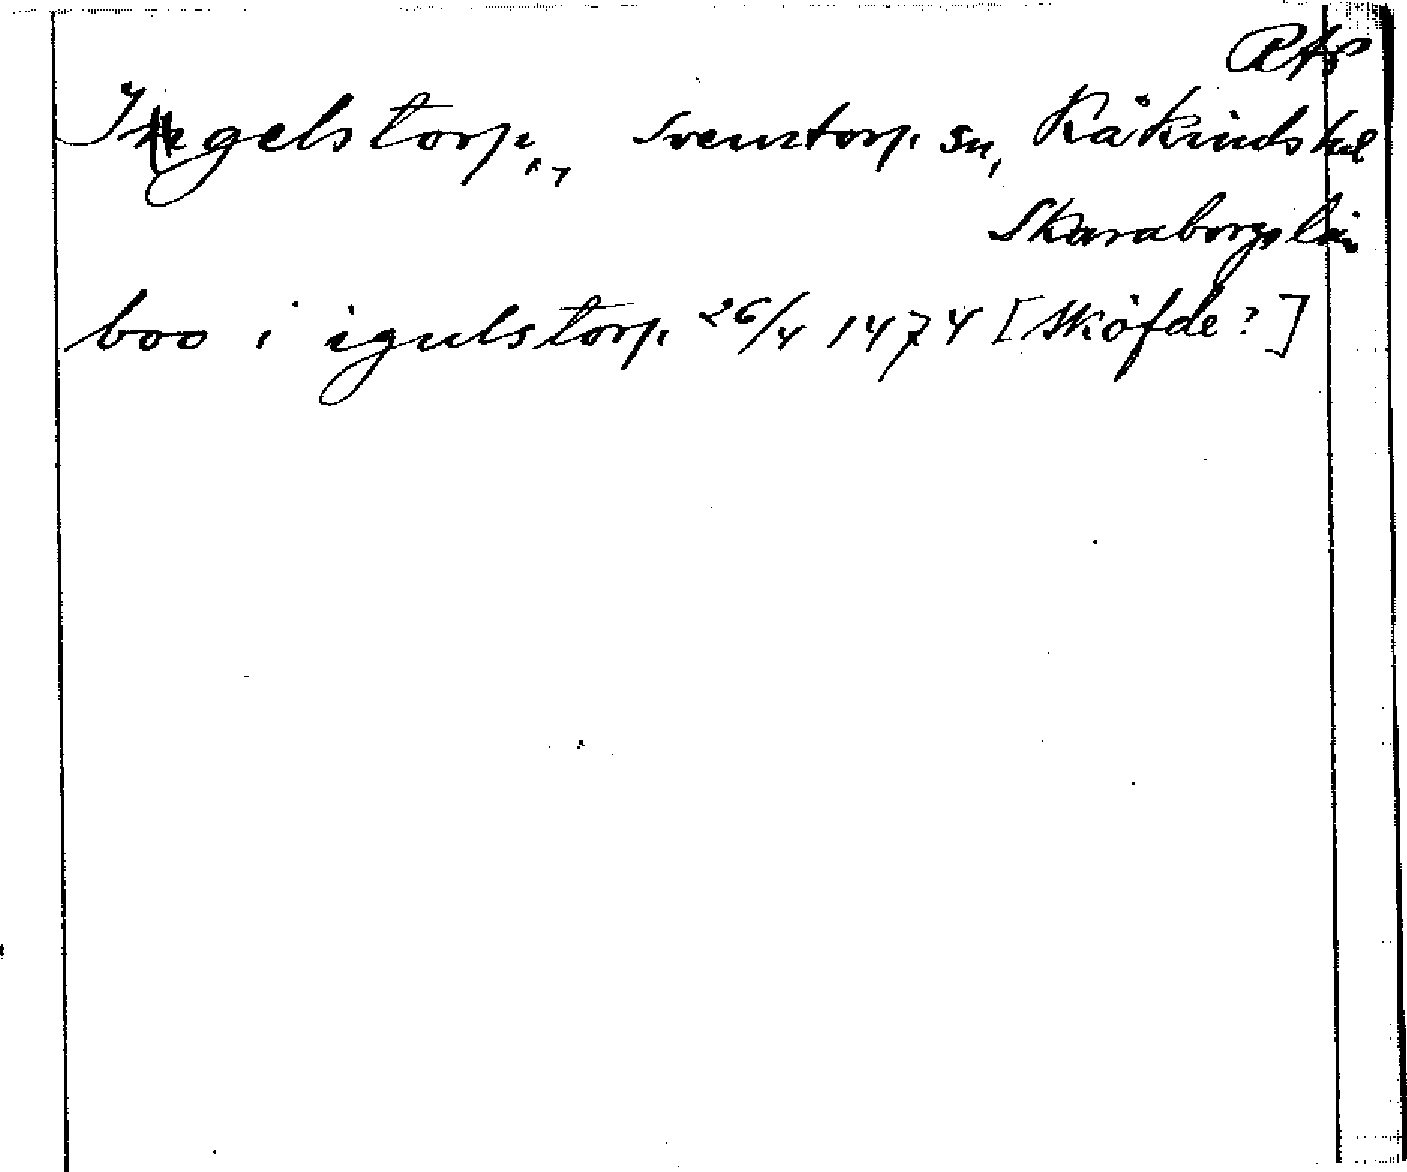 Ingelstorp, Svenstorp sn, Kåkinds hd
Skaraborgs län
boo i igulstorp 26/4 1474 [Sköfde?]